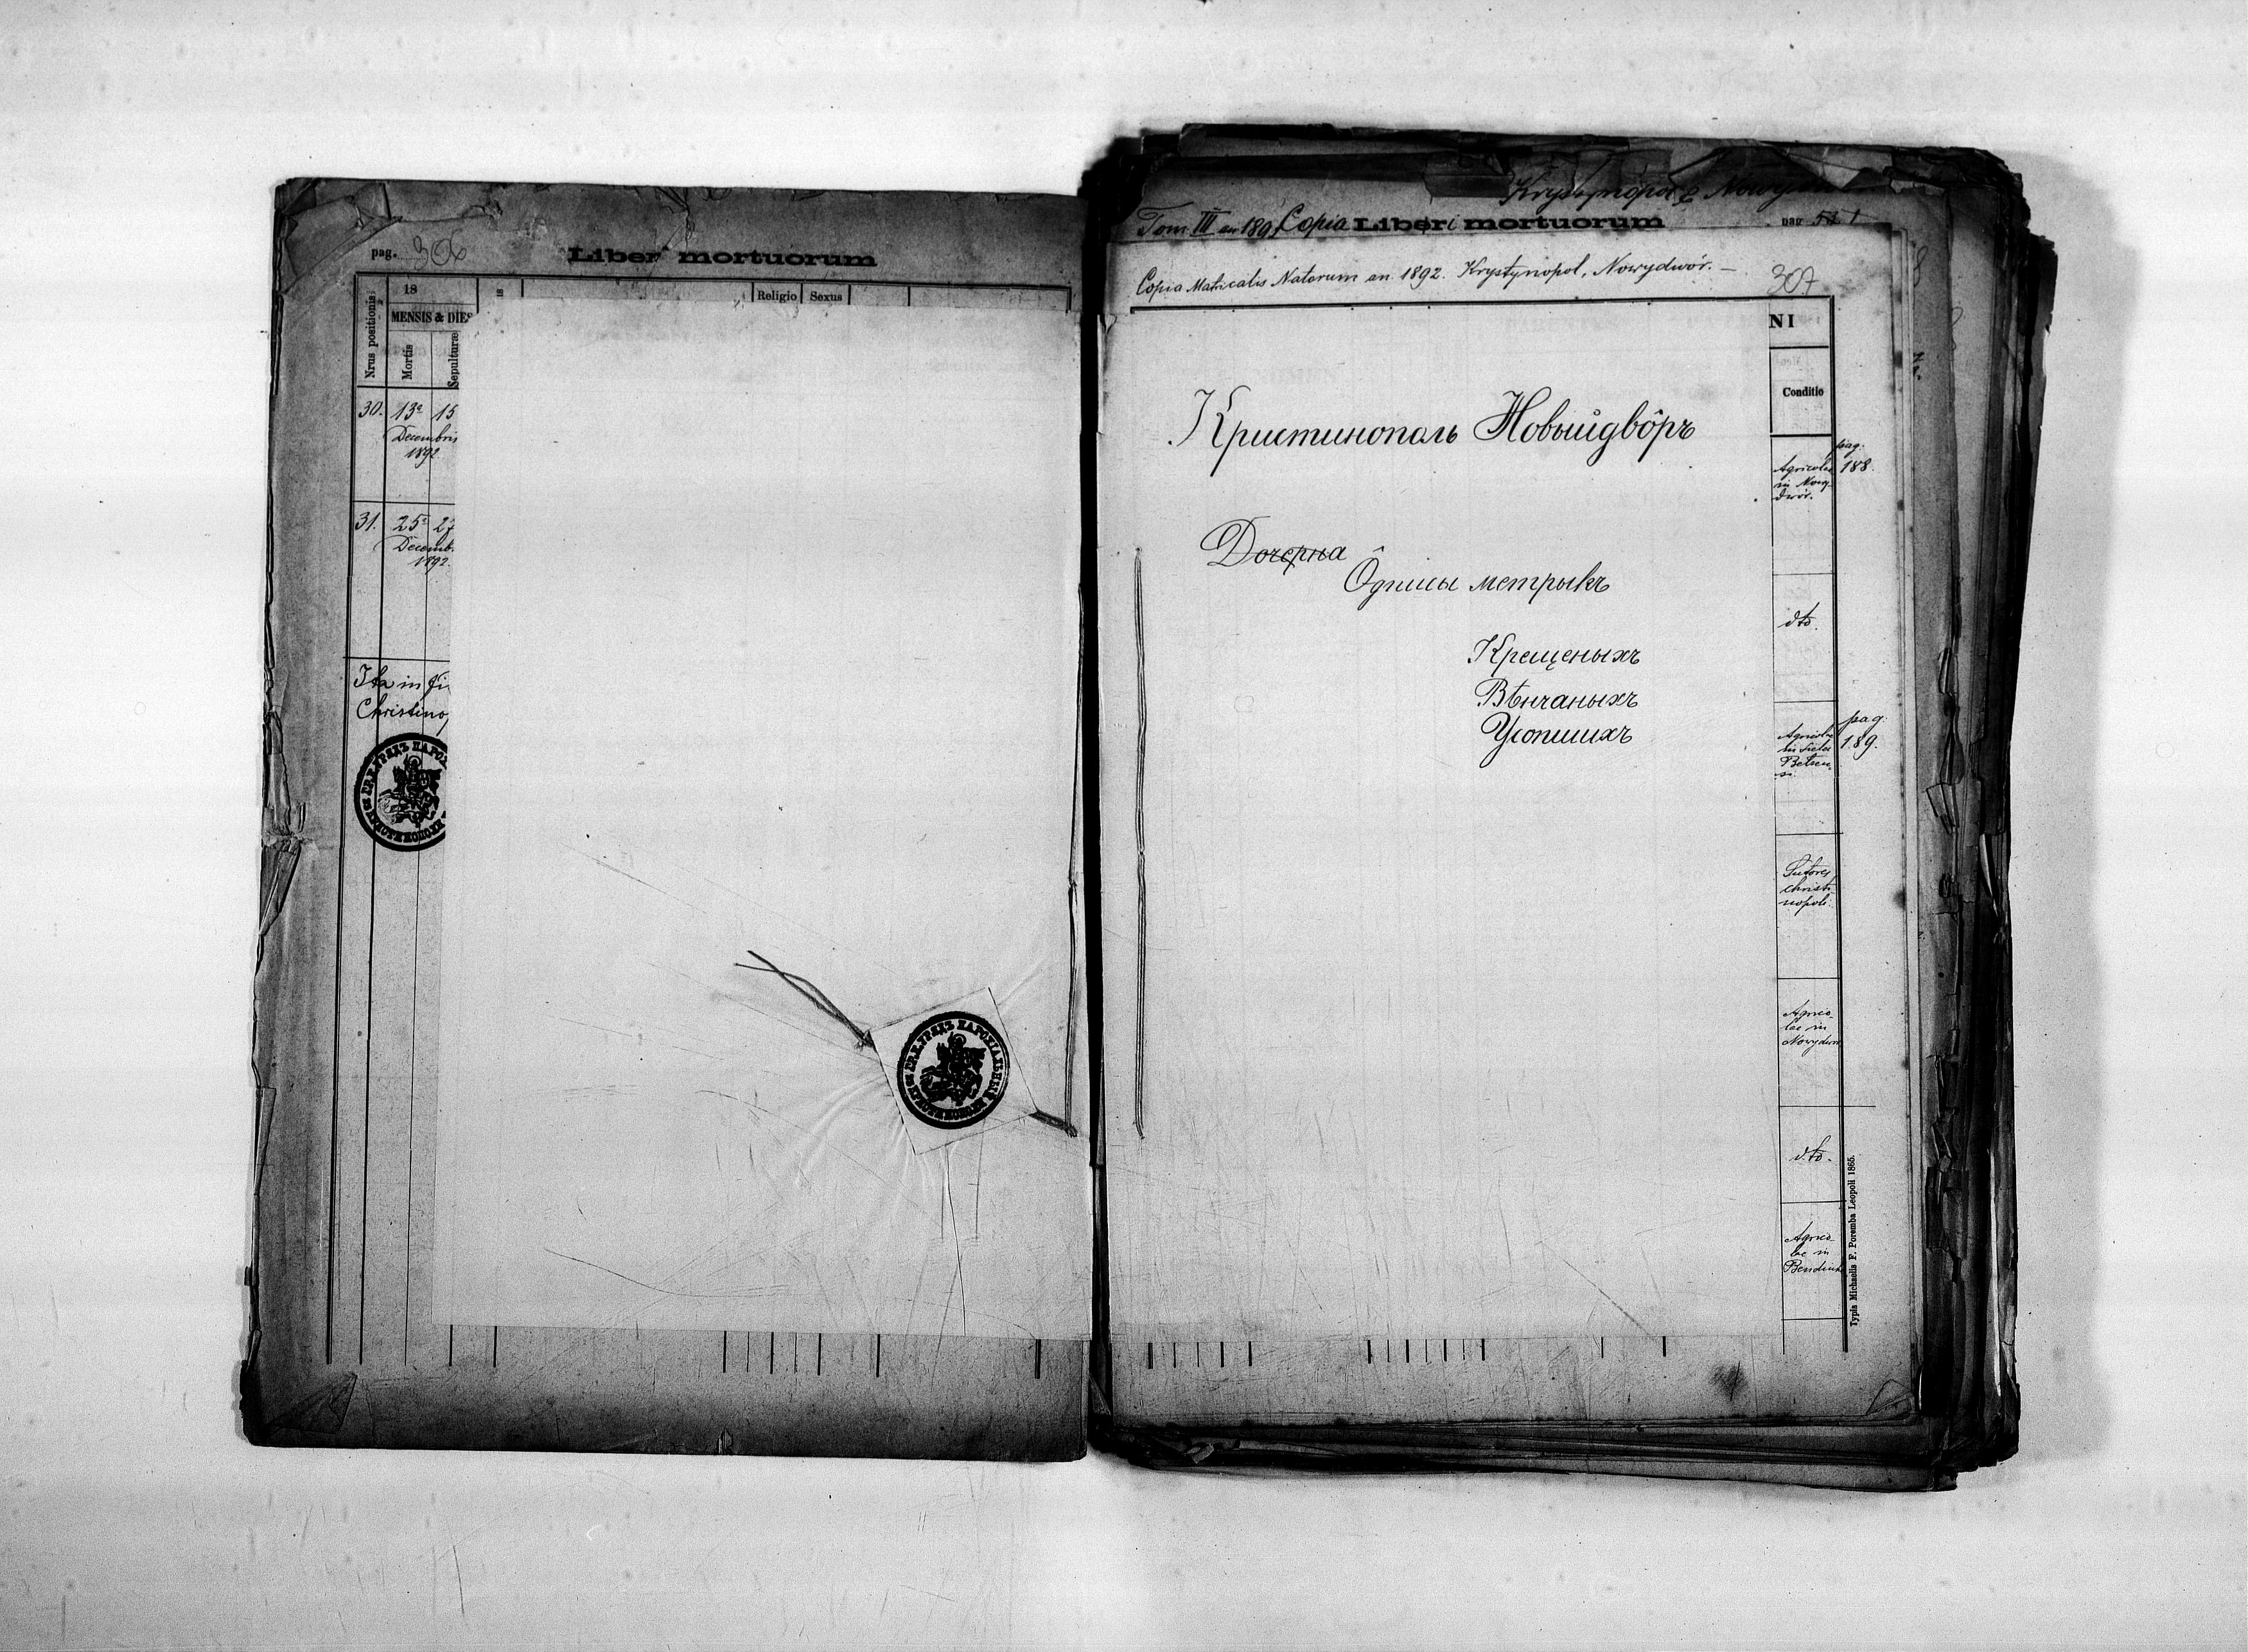 pag. 306
Liber mortuorum
Nrus positionis
18
MENSIS & DIES
Mortis
Sepulturæ
Religio
Sexus
30. 13ª 15
Decembris
1892
31. 25ª 27
Decemb.
1892.
Ita in fi
Christinop
Krystynopol
Tom III an 189 Copia Liberi mortuorum
pag
Copia Matricalis Natorum an 1892. Krystynopol, Nowydwór. —
307
NI
Conditio
Кристинополь Новыйдвôръ
Дочерна
Ôдписы метрыкъ
Крещеныхъ
Вѣнчаныхъ
Усопшихъ
pag.
188.
Agricolae
in Nowy
dwór.
dto.
pag.
189.
Sutores
christi
nopoli
Agrico
lae in
Nowydwor
dto.
Agrico
lae in
Typis Michaelis F. Poremba Leopoli 1865.